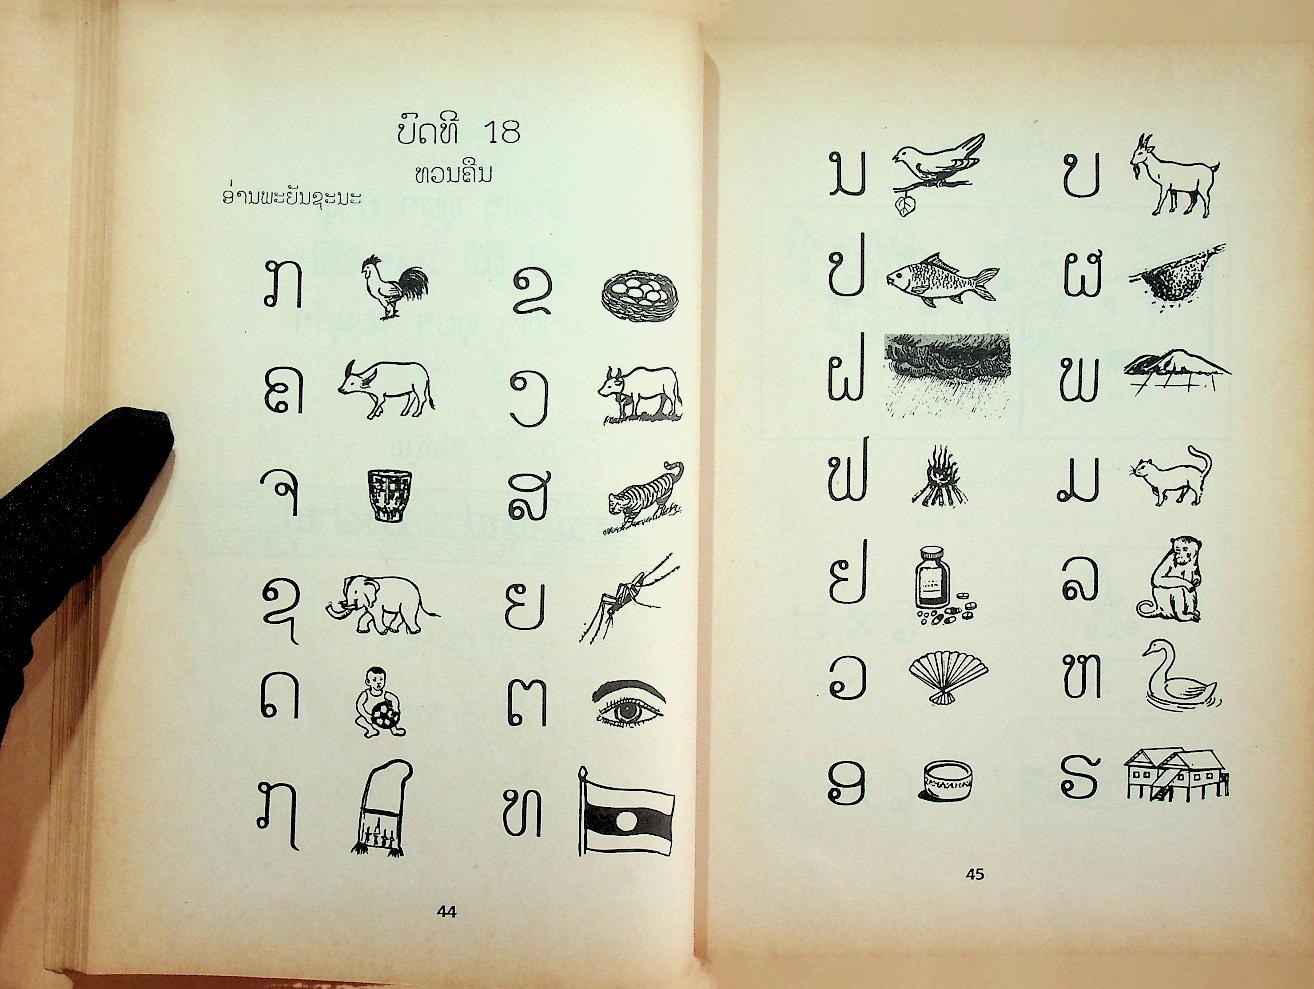 ບົດທີ 18
ທວນຄືນ
ອ່ານພະຍັນຊະນະ
ກ ຂ
ຄ ງ
ຈ ສ
ຊ ຍ
ດ ຕ
ຖ ທ
44
ນ ບ
ປ ຜ
ຝ ພ
ຟ ມ
ຢ ລ
ວ ຫ
ອ ຮ
45